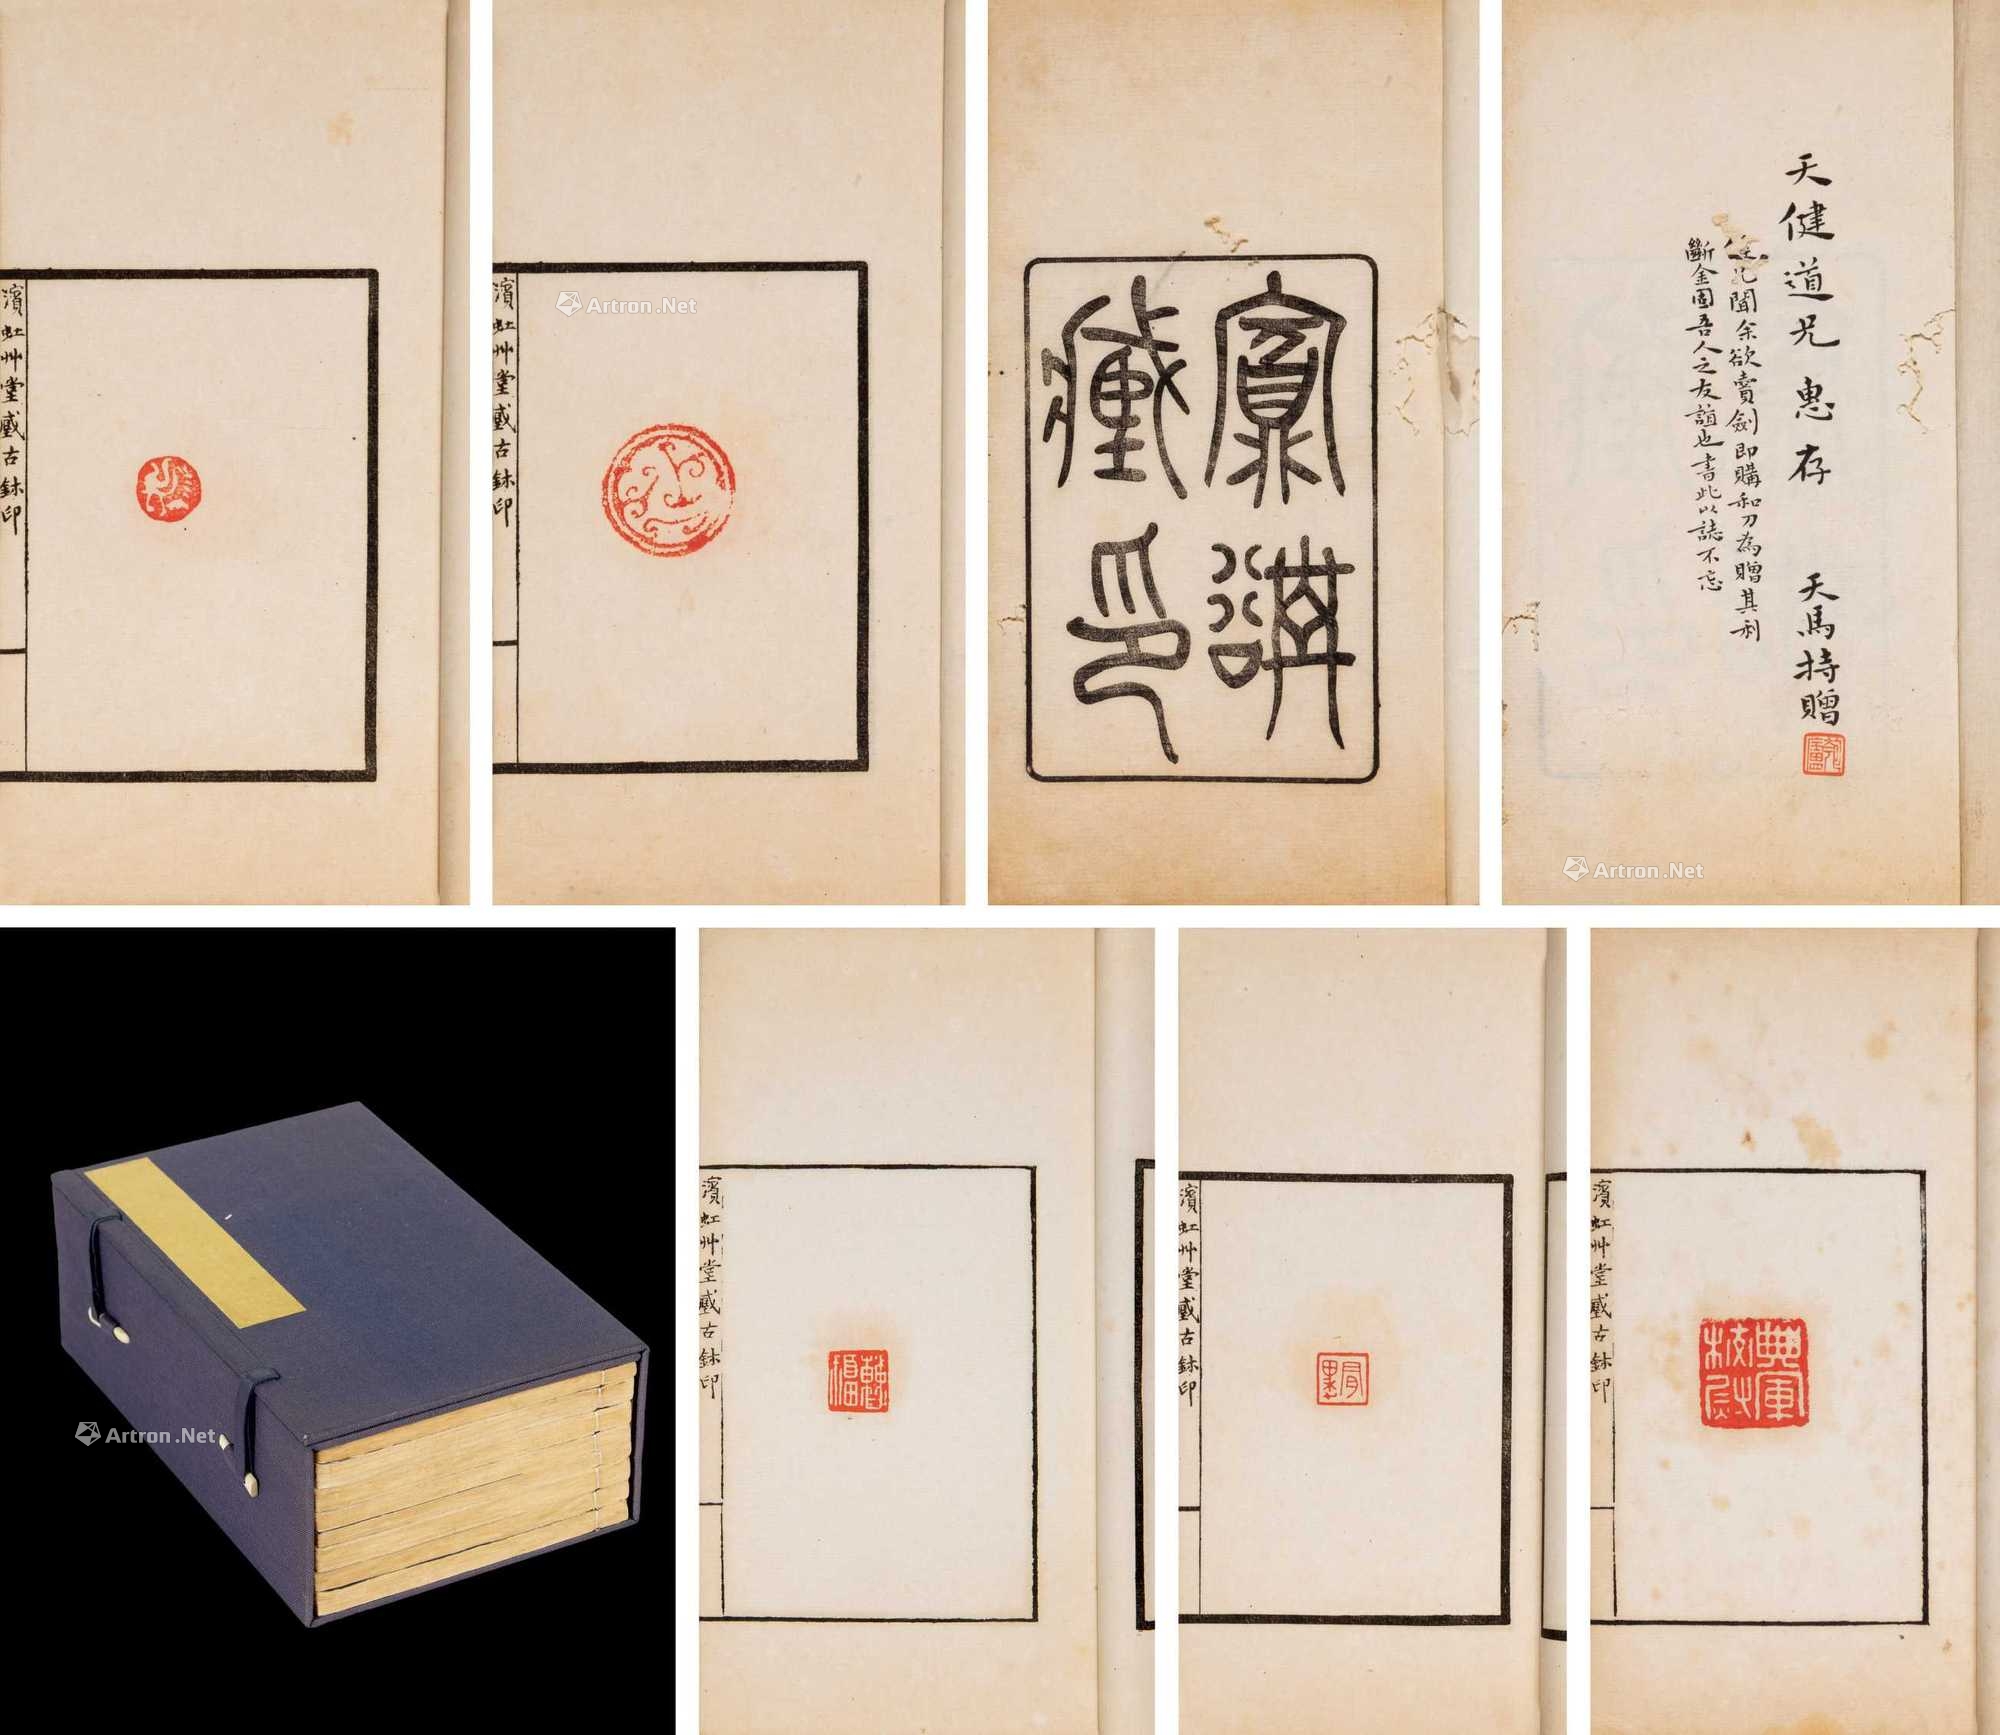 濱虹艸堂藏古鉥印
濱虹艸堂藏古鉥印
Artron.Net
藏印
天健道兄惠存 天馬持贈
兄聞余欲賣劍即購和刀為贈其利
斷金固吾人之友誼也書此以誌不忘
Artron.Net
Artron.Net
濱虹艸堂藏古鉥印
濱虹艸堂藏古鉥印
濱虹艸堂藏古鉥印
典軍
校尉